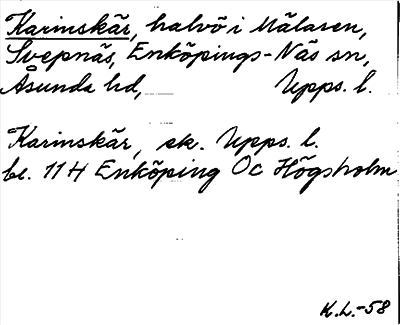 Karinskär, halvö i Mälaren,
Svepnäs, Enköpings-Näs sn,
Åsunda hd, Upps. l.
Karinskär, ek. Upps. l.
bl. 11 H Enköping Oc Högsholm
K.L.-58